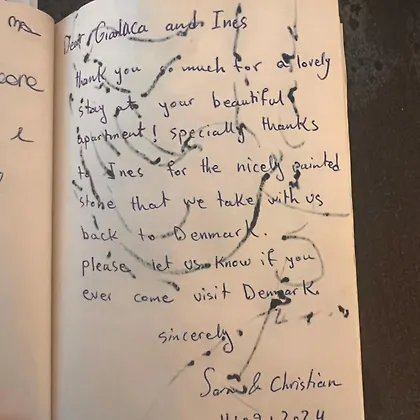 Dear Gianluca and Ines
thank you so much for a lovely
stay at your beautiful
apartment! specially thanks
to Ines for the nicely painted
stone that we take with us
back to Denmark.
please let us know if you
ever come visit Denmark.
sincerely.
& Christian